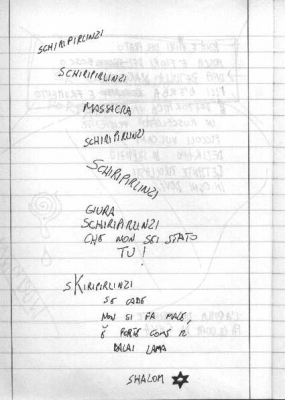 SCHIRIPIRLINZI
SCHIRIPIRLINZI
MASSACRA
SCHIRIPIRLINZI
SCHIRIPIRLINZI
GIURA
SCHIRIPIRLINZI
CHE NON SEI STATO
TU!
SKIRIPIRLINZI
SE CADE
NON SI FA MALE,
È FORTE COME IL
DALAI LAMA
SHALOM ✡